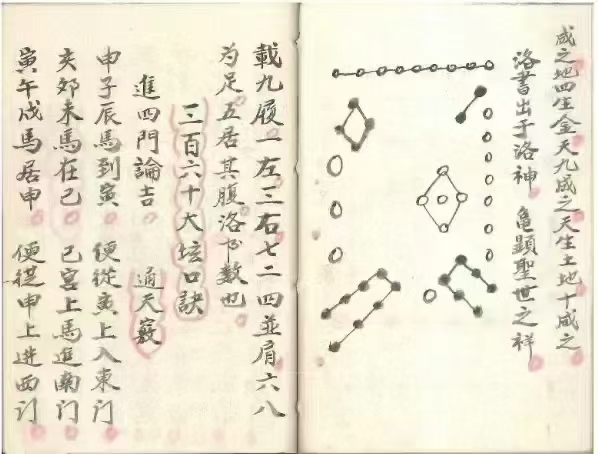 成之地四生金天九成之天生土地十成之
洛書出于洛神　龜顯聖世之祥
載九履一左三右七二四並肩六八
为足五居其腹洛书数也
三百六十大坛口訣
進四門論吉　通天竅
申子辰馬到寅　便從寅上入東门
亥郊未馬在己　己宮上馬進南门
寅午戌馬居申　便從申上进西门